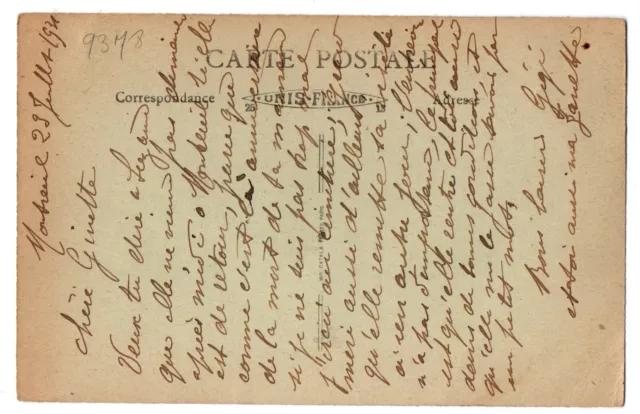 9378
CARTE POSTALE
Correspondance
UNIS-FRANCE
Adresse
Montreuil 29 Juillet 193
Chère Ginette
Veux tu dire à
que elle ne vien pas demain
après midi à Montreuil si elle
est de retour, parce que
comme c'est l'anniversaire
de la mort de sa maman
si je ne suis pas trop mal
j'irai au cimetière,
meri aussi d'ailleurs
qu'elle remette sa visite
à un autre jour,
n'a pas d'importance, le principal
est qu'elle rentre et toi aussi
dans de bonnes conditions et
qu'elle me le fasse savoir par
un petit mot
Bons baisers Gigi
et toi aussi ma